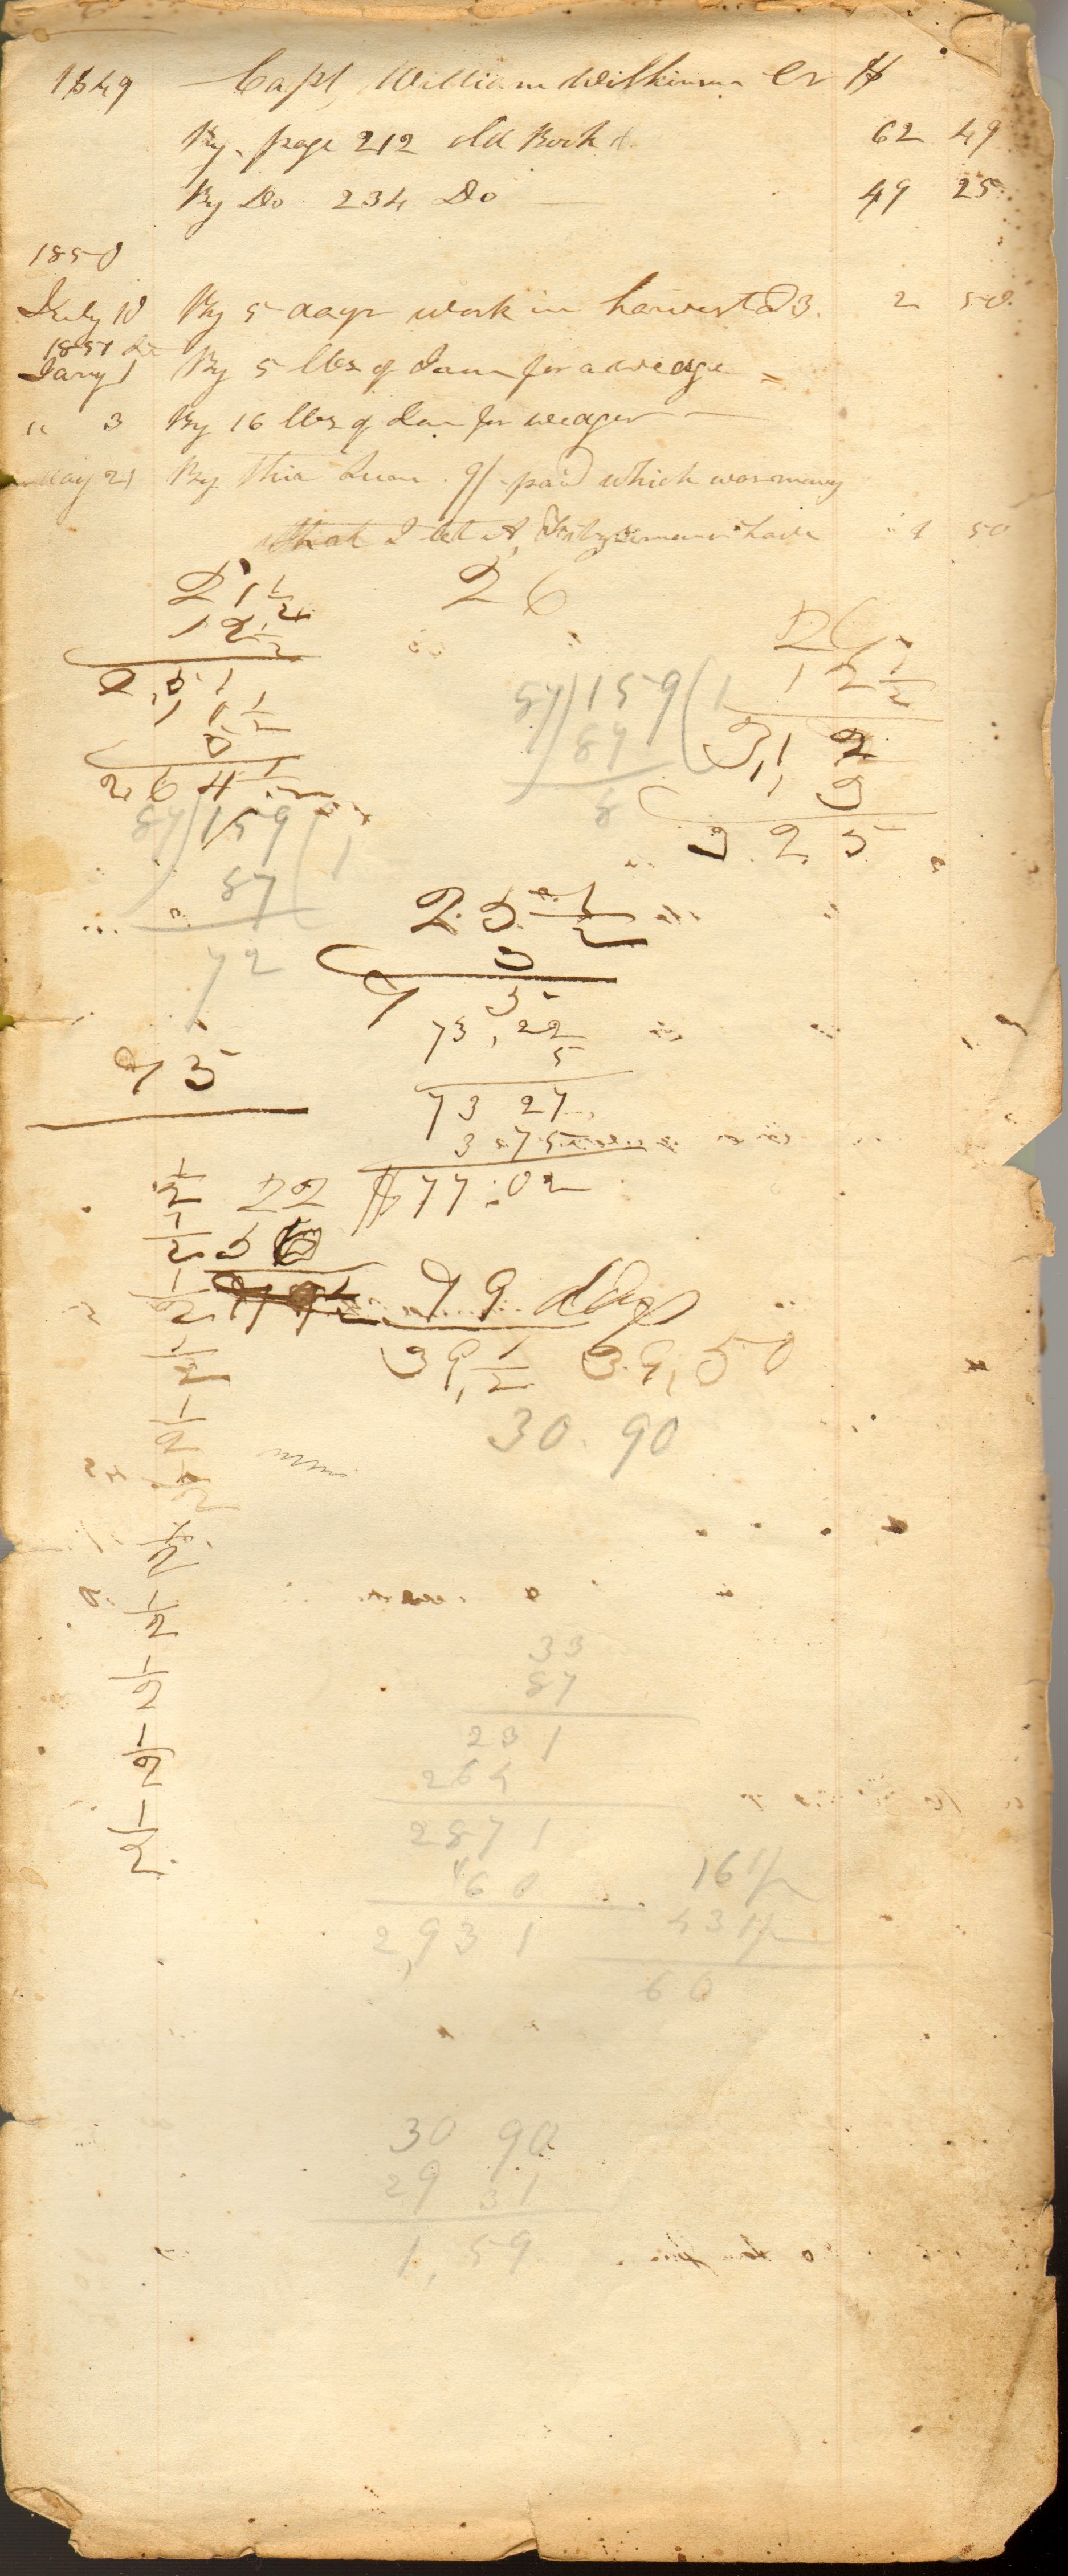 1849 Capt, William Wilkinson Cr $
By page 212 old Book 62 49
By Do 234 Do 49 25
1850
July 10 By 5 days work in harvest 2 50
1851
Jany 1 By 5 lbs of Iron for a wedge
" 3 By 16 lbs of Iron for wedges
May 21 By this Sum paid which was money
that I let A, Fitzsimmons have 1 50
21 1/2 26
12 1/2 26
12 1/2
2 5 1
1 0 1/2 87)159(1 3,1 2
87
72
3 2 5
2 6 4
87)159(1
87
72
25 1/2
3
75
73,22
75 5
73 27
3 75
1/2 22 $77.02
1/2
1/2 79 days
1/2 39,1/2 39,50
1/2 30.90
1/2
1/2
1/2
33
1/2 87
1/2 231
264
1/2 2871
60 16 1/2
2,931 43 1/2
60
30 90
29 31
1,59